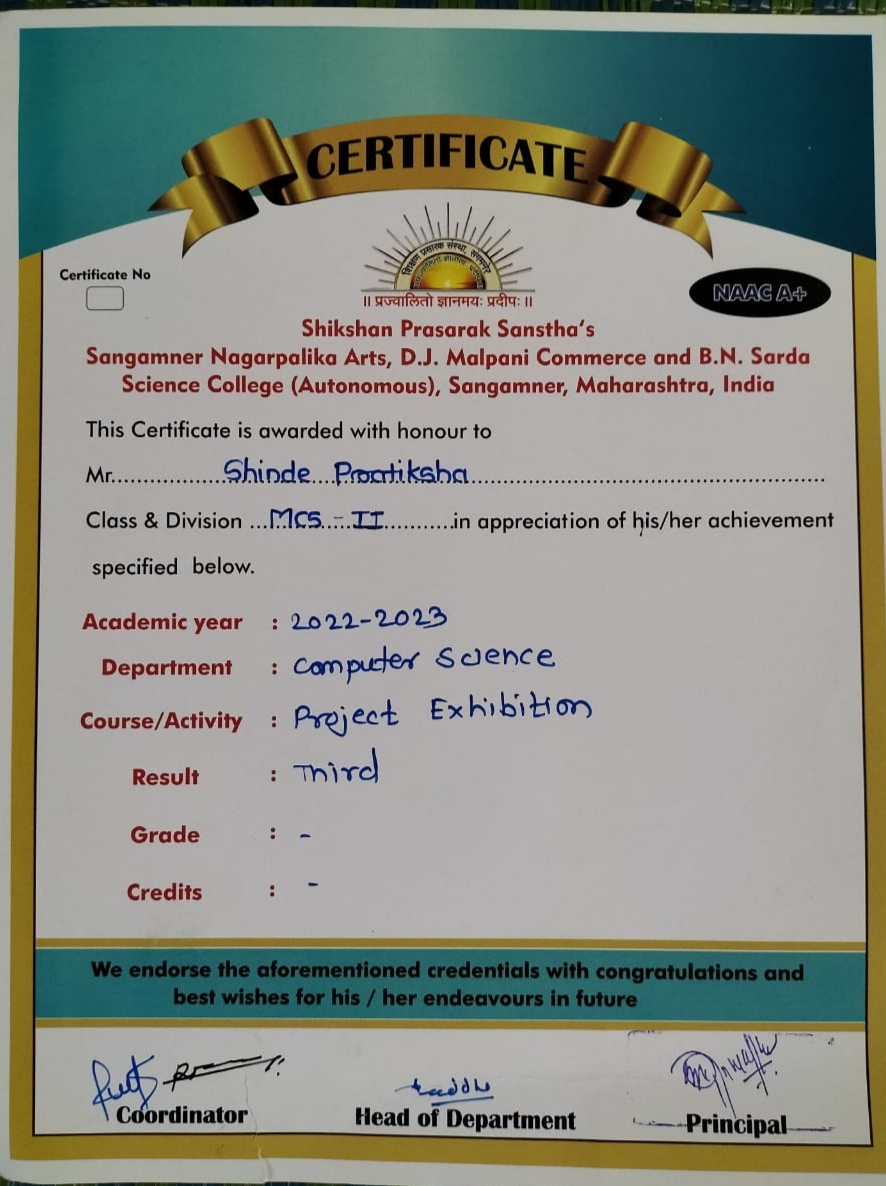 CERTIFICATE
Certificate No
शिक्षण प्रसारक संस्था, संगमनेर
॥ प्रज्वालितो ज्ञानमयः प्रदीपः ॥
NAAC A+
Shikshan Prasarak Sanstha's
Sangamner Nagarpalika Arts, D.J. Malpani Commerce and B.N. Sarda
Science College (Autonomous), Sangamner, Maharashtra, India
This Certificate is awarded with honour to
Mr. Shinde Pratiksha
Class & Division MCS - II in appreciation of his/her achievement
specified below.
Academic year : 2022-2023
Department : Computer Science
Course/Activity : Project Exhibition
Result : Third
Grade : -
Credits : -
We endorse the aforementioned credentials with congratulations and
best wishes for his / her endeavours in future
Coordinator
Head of Department
Principal